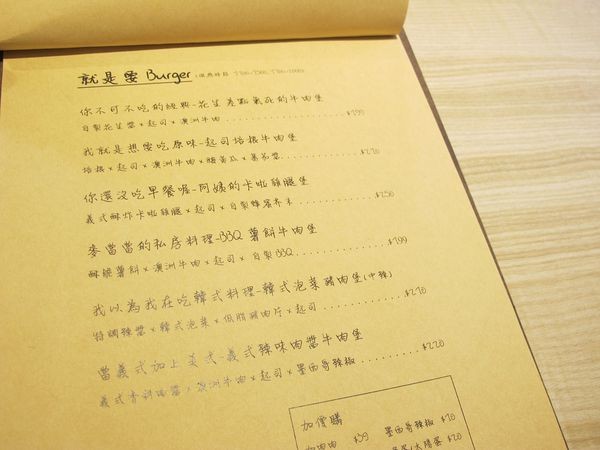 就是要Burger
你不可不吃的經典-花生差點氣死的牛肉堡
自製花生醬 x 起司 x 澳洲牛肉 $199
我就是想要吃原味-起司培根牛肉堡
培根 x 起司 x 澳洲牛肉 x 酸黃瓜 x 蕃茄醬 $220
你還沒吃早餐喔-阿姨的卡啦雞腿堡
義式酥炸卡啦雞腿 x 起司 x 自製蜂蜜芥末 $250
麥當當的私房料理-BBQ 薯餅牛肉堡
酥脆薯餅 x 澳洲牛肉 x 起司 x 自製BBQ $199
我以為我在吃韓式料理-韓式泡菜豬肉堡(中辣)
特調辣醬 x 韓式泡菜 x 低脂豬肉片 x 起司 $210
當義式加上美式-義式辣味肉醬牛肉堡
義式香料肉醬 x 澳洲牛肉 x 起司 x 墨西哥辣椒 $220
加價購
加肉肉 $39 墨西哥辣椒 $10
太陽蛋 $20